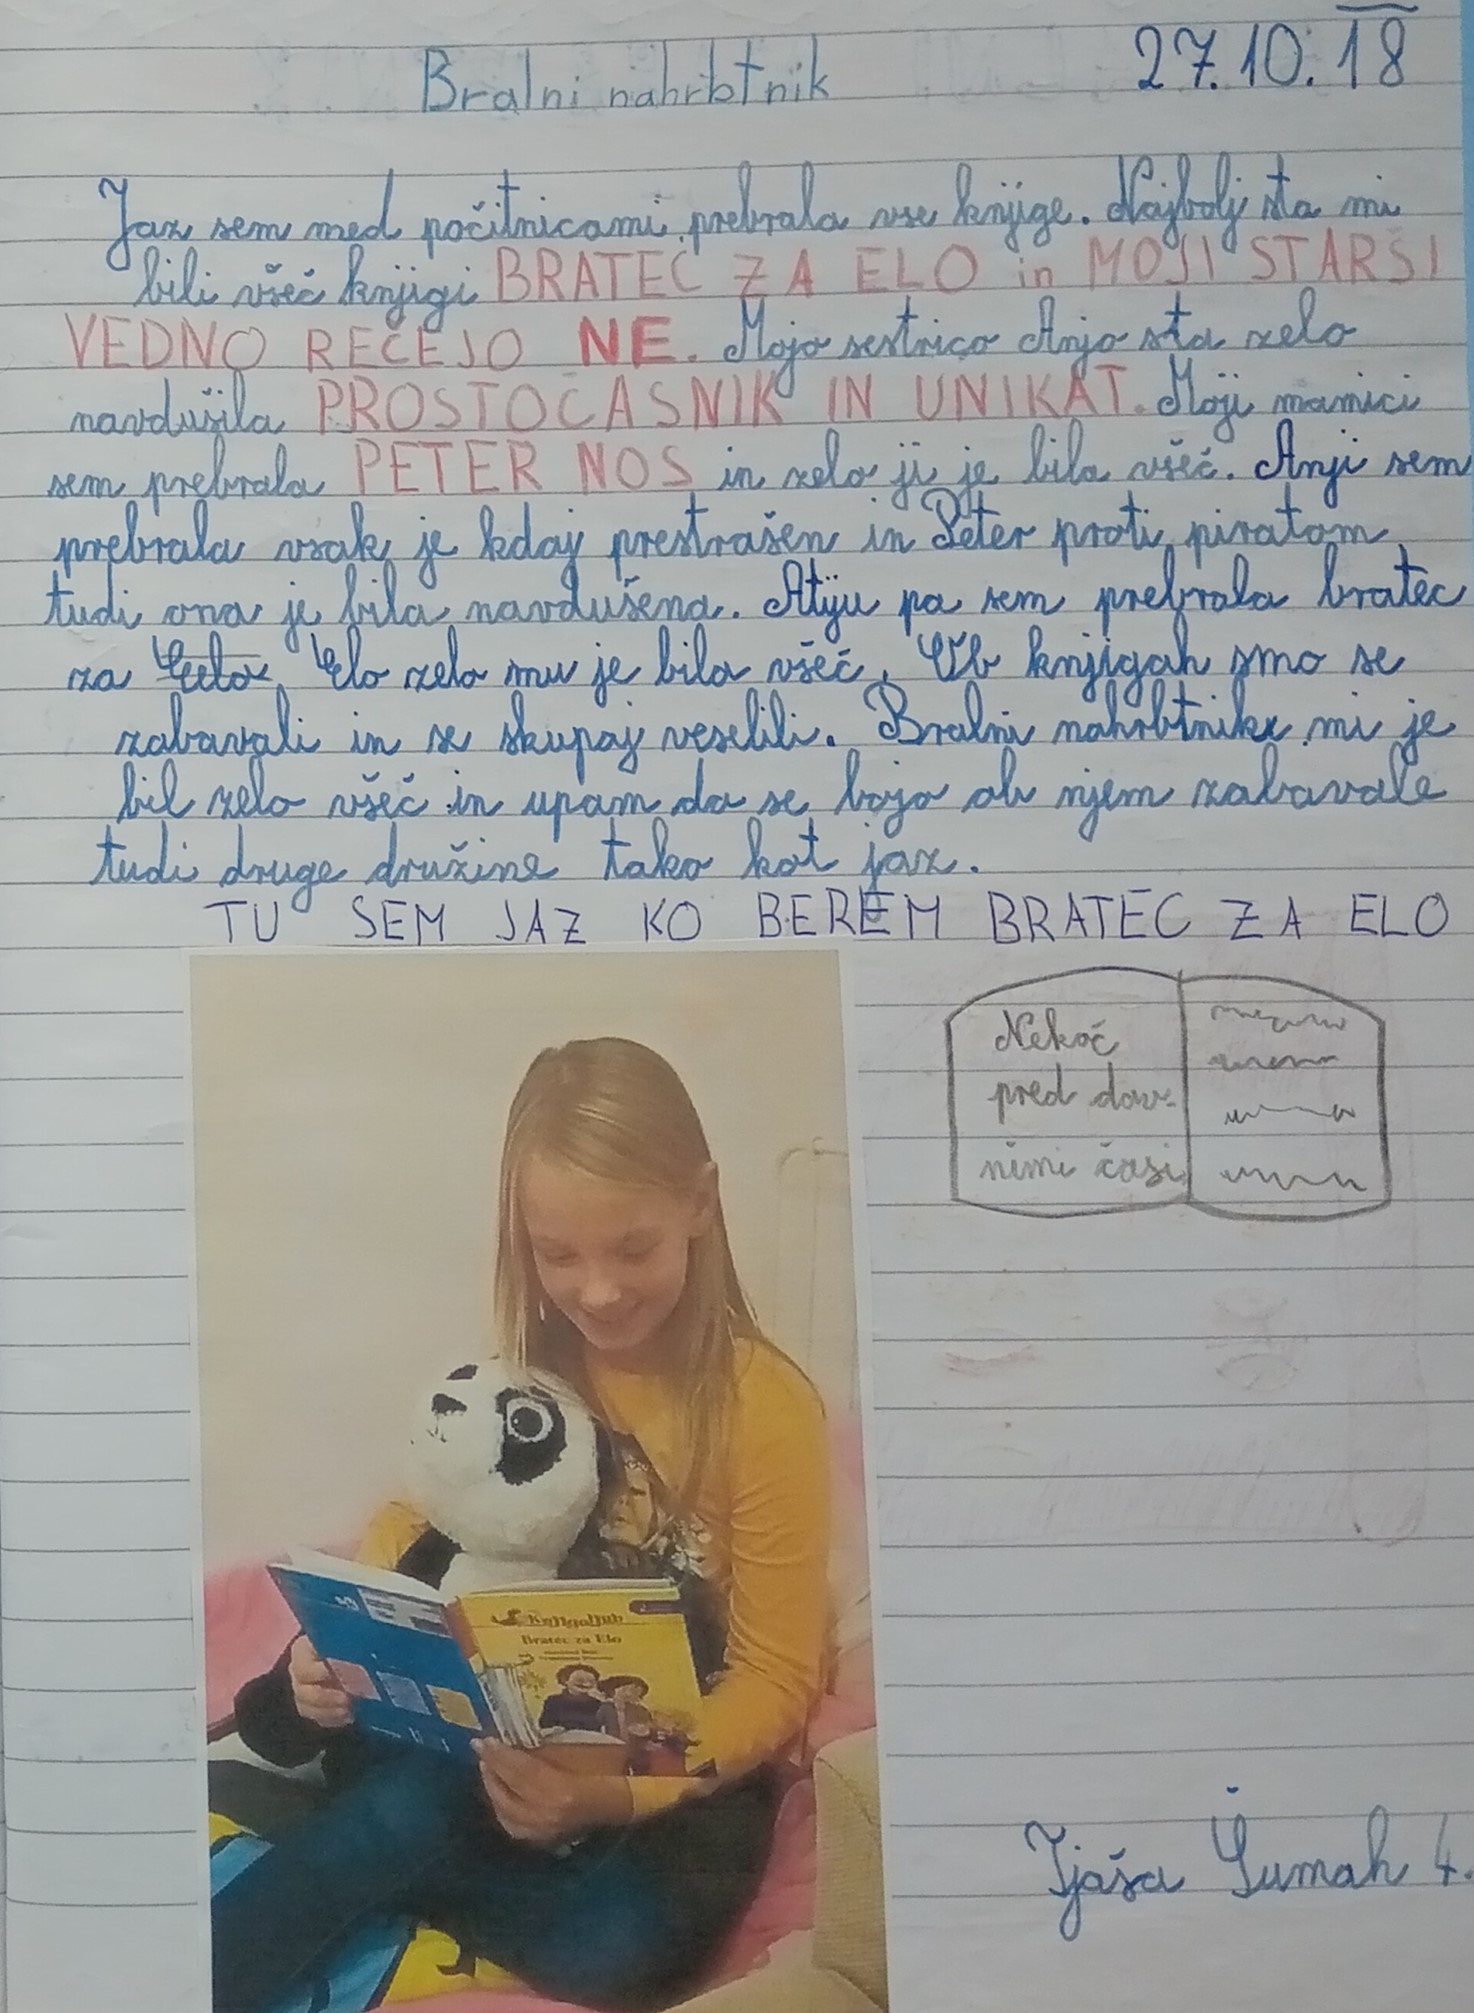 Bralni nahrbtnik
27.10.18
Jaz sem med počitnicami prebrala vse knjige. Najbolj sta mi
bili všeč knjigi BRATEC ZA ELO in MOJI STARŠI
VEDNO REČEJO NE. Mojo sestrico Anjo sta zelo
navdušila PROSTOČASNIK IN UNIKAT. Moji mamici
sem prebrala PETER NOS in zelo ji je bila všeč. Anji sem
prebrala vsak je kdaj prestrašen in Peter proti piratom
tudi ona je bila navdušena. Atiju pa sem prebrala bratec
za Elo zelo mu je bila všeč. Ob knjigah smo se
zabavali in se skupaj veselili. Bralni nahrbtnik mi je
bil zelo všeč in upam da se bojo ob njem zabavale
tudi druge družine tako kot jaz.
TU SEM JAZ KO BEREM BRATEC ZA ELO
Nekoč
pred dav-
nimi časi
Knjigoljub
Bratec za Elo
Tjaša Šumah 4.